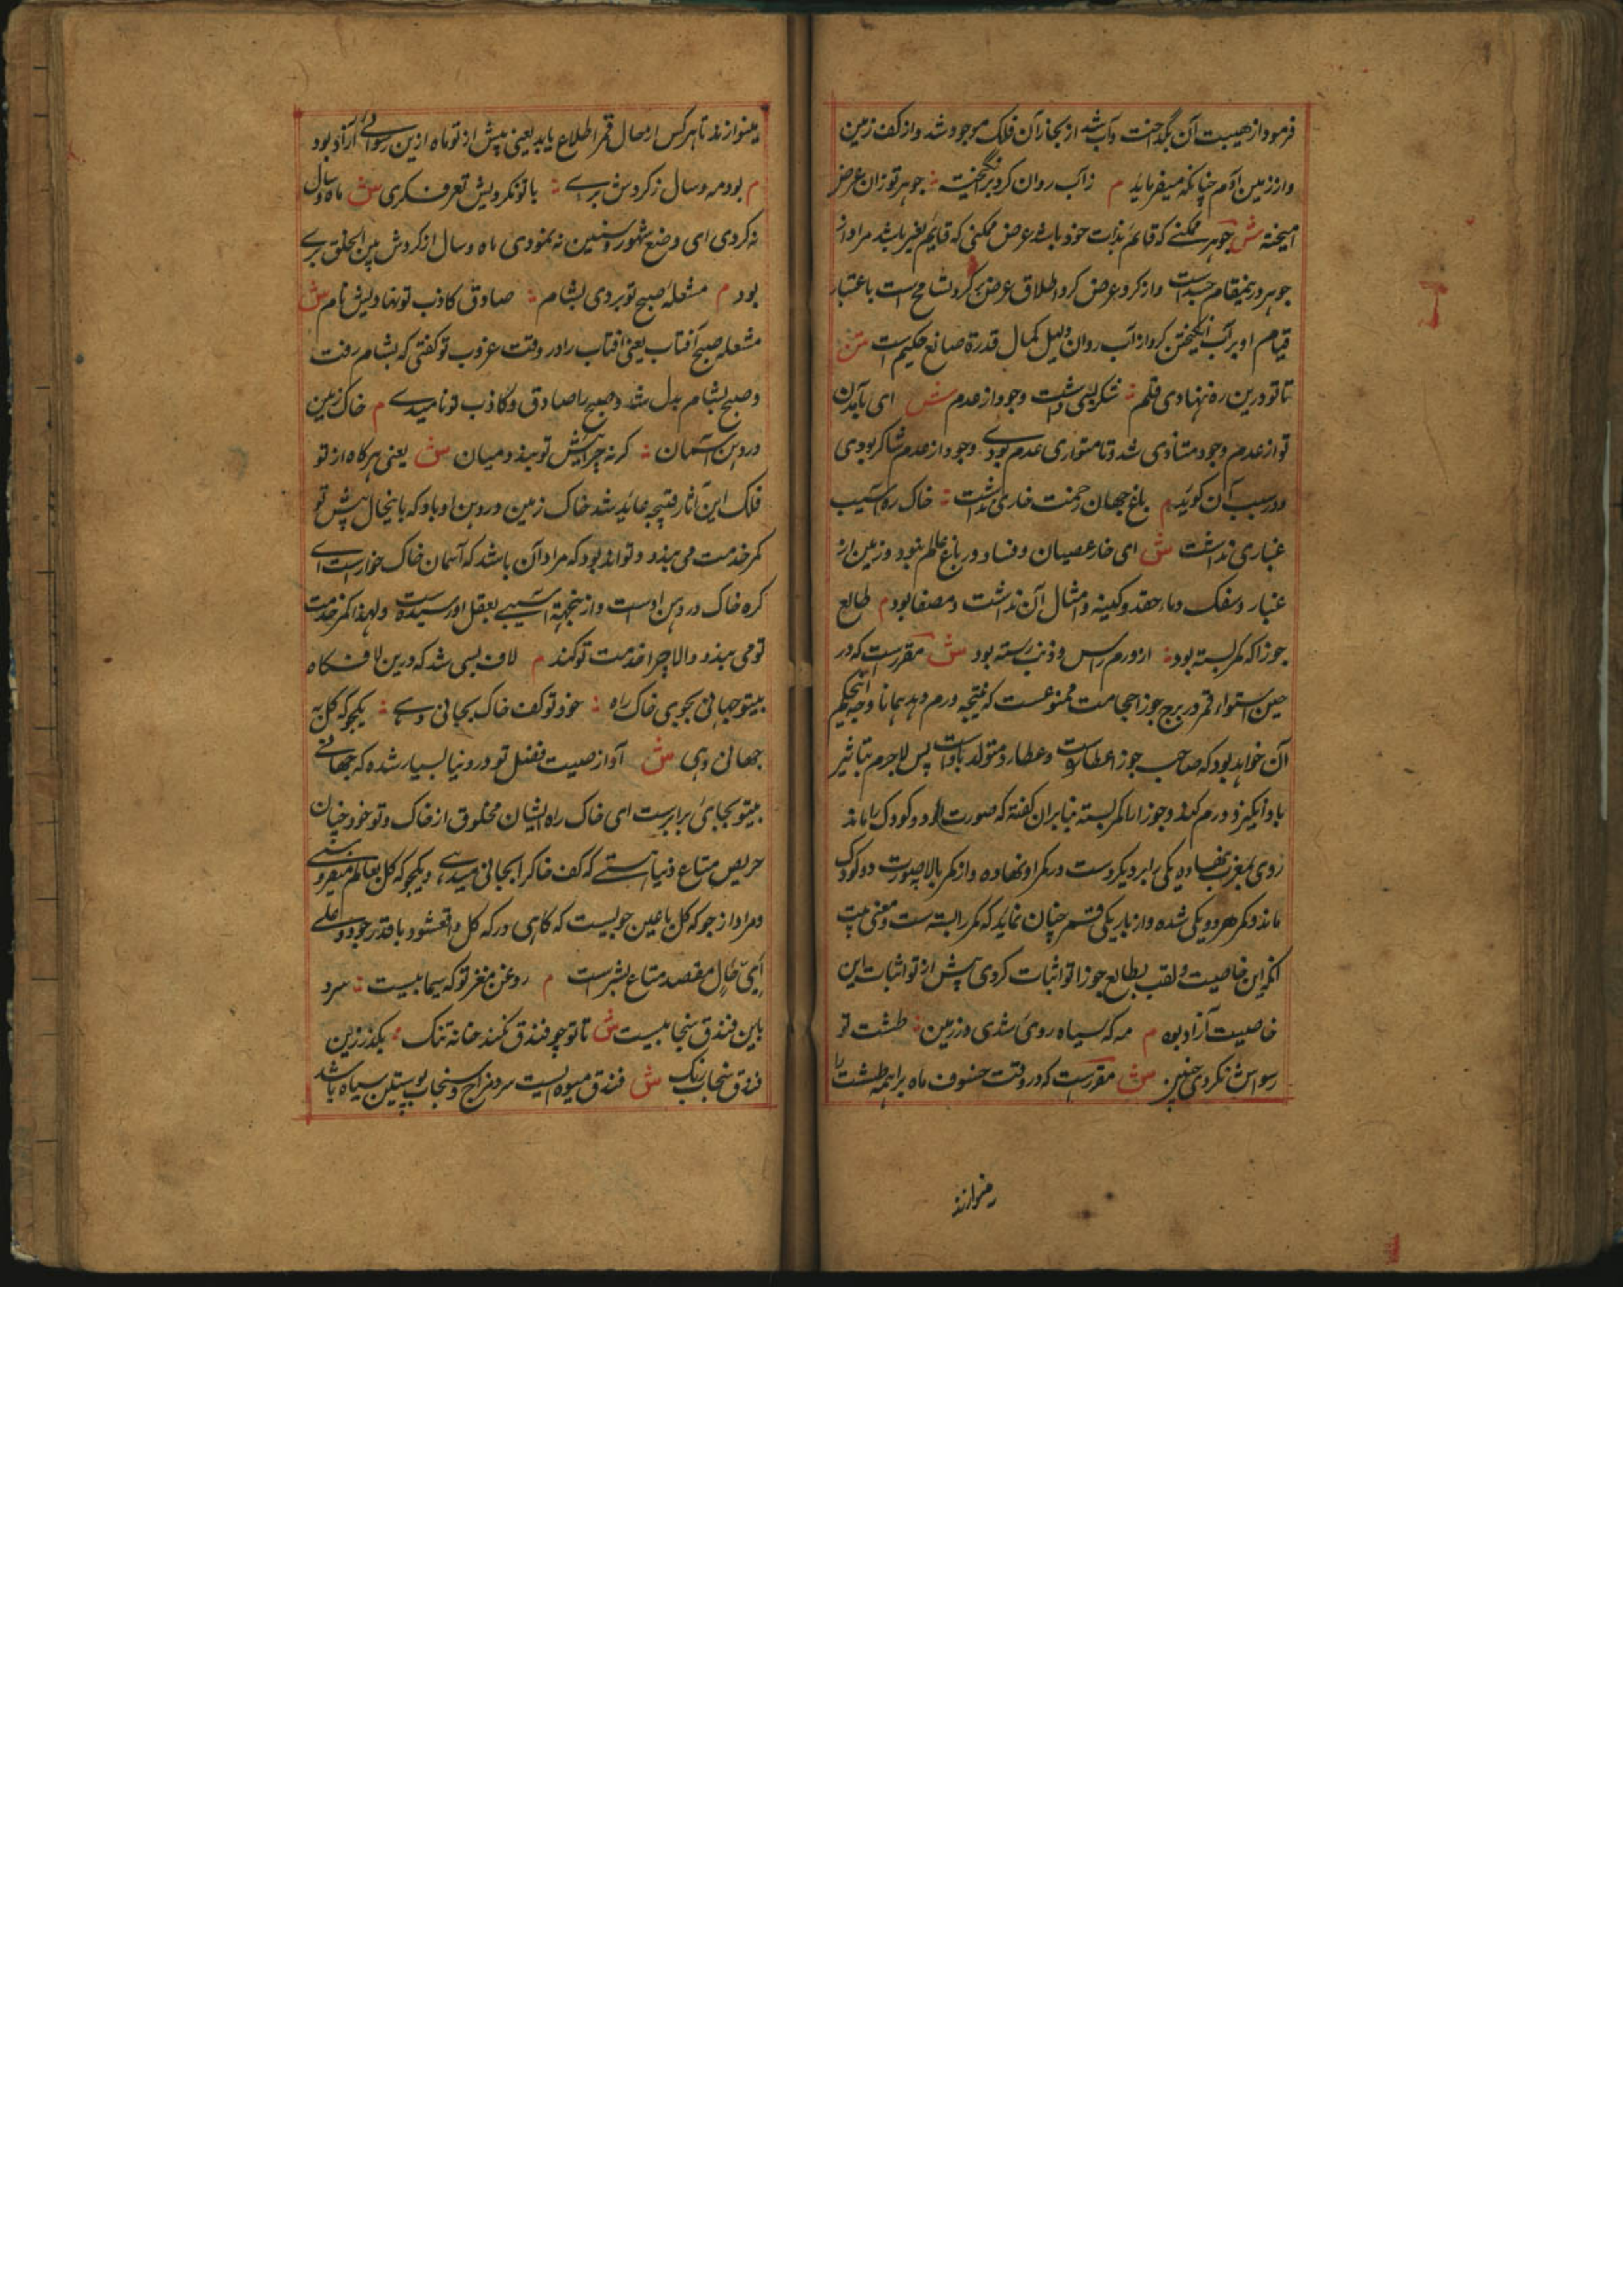 فرمود از هیبت آن بگداخت و آب شد از بخار آن فلک موجود شد و از کف زمین
و از زمین آدم چنانکه میفرماید م ز آب روان کرد برانگیخته جوهر تو زان عرض
آمیخته ش جوهر ممکنی که قائم بذات خود باشد عرض ممکنی که قایم بغیر باشد مراد از
جوهر درینمقام جسد است و از کرد عرض کرد و اطلاق عرض بر کرد تسامح است باعتبار
قیام او بر آب انگیختن کرد از آب روان دلیل کمال قدرة صانع حکیم است متن
تا تو درین ره ننهادی قلم شکر بسی داشت وجود از عدم ش ای بآمدن
تو از عدم وجود متاذی شد و تا متواری عدم بودی وجود از عدم شاکر بودی
و در سبب آن گوید م باغ جهان زحمت خاری نداشت خاک ره آسیب
غباری نداشت ش ای خار عصیان و فساد در باغ عالم نبود و زمین از
غبار و سفک دماء حقد و کینه و امثال آن نداشت و مصفا بود م طالع
جوزا که کمر بسته بود از ورم راس و ذنب رسته بود ش مقررست که در
حین استواء قمر در برج جوزا حجامت ممنوعست که نتیجه ورم دهد همانا وجه اینحکم
آن خواهد بود که صاحب جوزا عطارد است و عطارد متولد باد است پس لاجرم بتاثیر
باد انگیزد ورم کند و جوزا را کمر بسته بنابران گفته که صورت او دو کودک را ماند
روی بمغرب نهاده یکی برابر دیگر دست در کمر او نهاده و از کمر بالا بصورت دو کودک
ماند و کمر هر دو یکی شده و از باریکی قسم چنان نماید که کمر را بسته ست و معنی بیت
آنکه این خاصیت و لقب بطالع جوزا تو اثبات کردی پیش از تو اثبات این
خاصیت آزاد بوده م مه که سیاه روی شدی در زمین طشت تو
رسواش نکردی چنین ش مقررست که در وقت خسوف ماه براهمه طشت را
مینوازند
مینوازند تا هر کس از حال قمر اطلاع یابد یعنی پیش از تو ماه ازین رسوائی آزاد بود
م بود مه و سال ز گردش بری تا تو نکردیش تعرف گری ش ماه و سال
نه کردی ای وضع شهور و سنین نه نمودی ماه و سال از گردش بین الخلق بری
بود م مشعله صبح تو بردی بشام صادق و کاذب تو نهادیش نام ش
مشعله صبح آفتاب یعنی آفتاب را در وقت غروب تو گفتی که بشام رفت
و صبح بشام بدل شد و صبح را صادق و کاذب تو نامیدی م خاک زمین
در دهن آسمان گرنه چرا پیش تو بندد میان ش یعنی هرگاه از تو
فلک این آثار قبیحه عاید شد خاک زمین در دهن او باد که باینحال پیش تو
کمر خدمت می بندد و تواند بود که مراد آن باشد که آسمان خاک خوار است ای
کره خاک در دهن اوست و از ینجهة آسیبی بعقل او رسیده است و لهذا کمر خدمت
تو می بندد والا چرا خدمت تو کند م لاف بسی شد که درین لافگاه
بیتو جهانی بجوی خاک راه خود تو کف خاک بجانی دهی یکجو که گل به
جهانی دهی ش آواز صیت فضل تو در دنیا بسیار شده که جهانی
بیتو بجای برابر ست ای خاک راه ایشان مخلوق از خاک و تو خود چنان
حریص متاع دنیا هستی که کف خاک را بجانی میدهی و یکجو که گل بعالم میفروشی
و مراد از جو که گل
ای مقصد متاع بشر است م روغن مغز تو که سیمابیست سرد
باین فندق سنجابیست ش تا تو چو فندق نکند خانه تنک بگذر زین
فندق سنجاب رنگ ش فندق میوه ایست سرد مزاج و سنجاب پوستین سیاه باشد